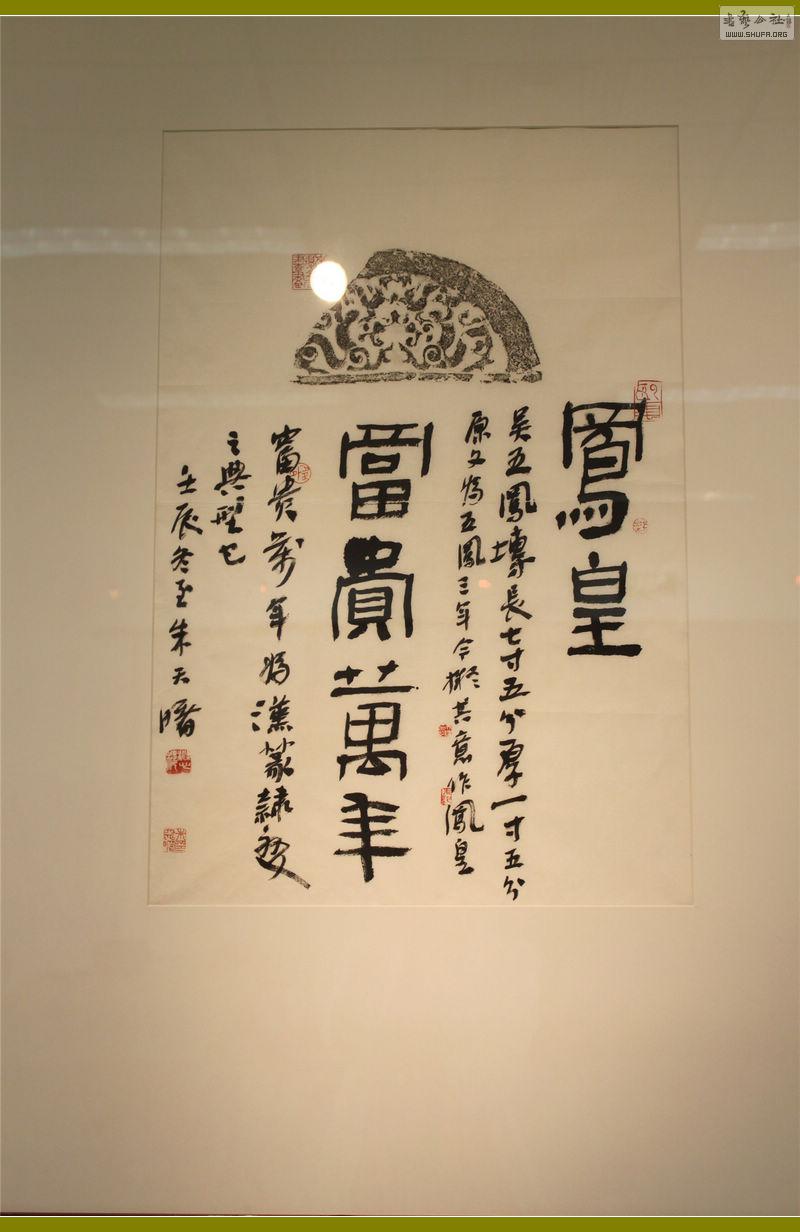 鳳皇
吴五鳳塼長七寸五分厚一寸五分
原文為五鳳三年今擬其意作鳳皇
富貴萬年
富貴萬年為漢篆隸變
之典型也
壬辰冬至朱天曙
書藝公社
WWW.SHUFA.ORG